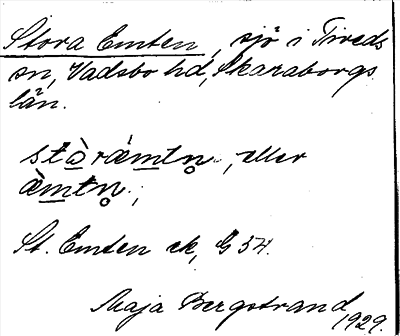 Stora Emten, sjö i Tiveds
sn, Vadsbo hd, Skaraborgs
län.
stòræmtn̥, eller
æ̀mtn̥,
St. Emten ek, G 54.
Maja Bergstrand
1929.